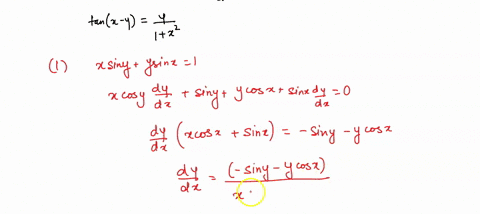 tan(x-y) = y/(1+x²)
(1) x siny + y sinx = 1
x cosy dy/dx + siny + y cosx + sinx dy/dx = 0
dy/dx (x cosx + sinx) = -siny - y cosx
dy/dx = (-siny - y cosx)/x